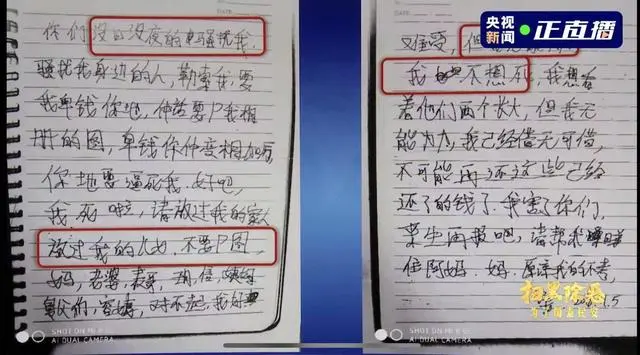 央视新闻 正直播
你们没日没夜的骚扰我,
骚扰我身边的人,勒索我,要
我卑钱你地,仲话要P我相
册的图,卑钱你仲变相加
你地要逼死我.好吧,
我死啦,请放过我的家人
放过我的人女,不要P图,
妈,老婆,表哥,
舅父们,对不起,我好
DATE
难受,但
我不想死,我想看
着他们两个长大,但我无
能为力,我已经借无可借,
不可能再还这些已经
还了的钱了.我害了你们,
来生再报吧,请帮我
住阿妈.妈,原谅我的不孝
1.5
扫黑除恶
为了国泰民安
SHOT ON MI
AI DUAL CAMERA
SHOT ON MI
AI DUAL CAMERA